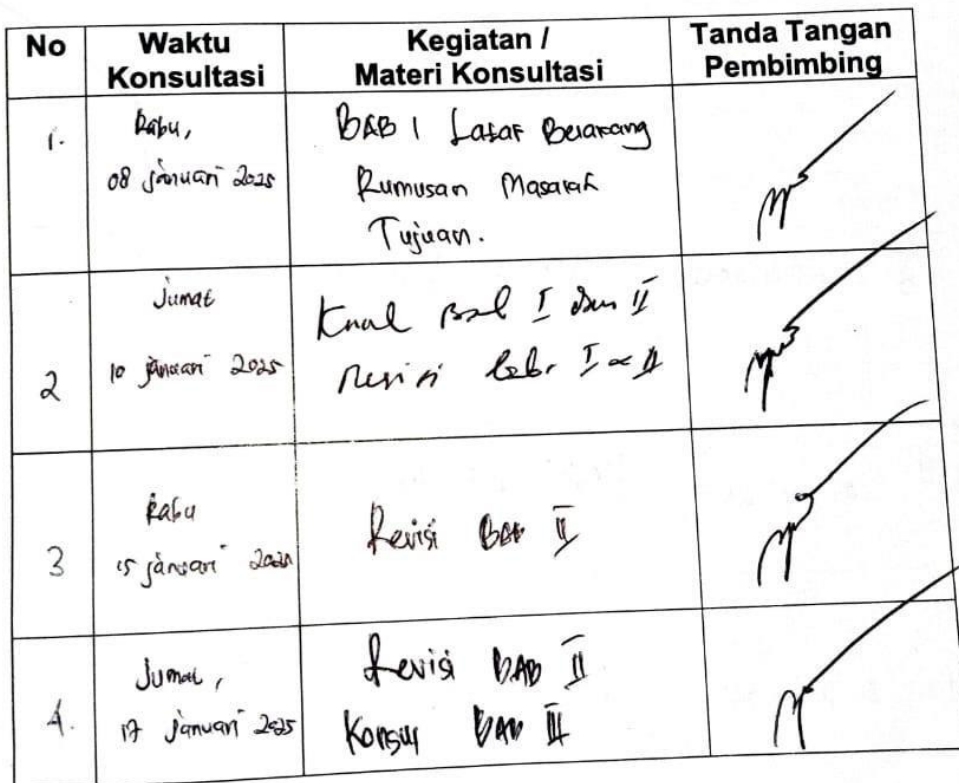 No
Waktu
Konsultasi
Kegiatan /
Materi Konsultasi
Tanda Tangan
Pembimbing
1.
Rabu,
08 januari 2025
BAB 1 Latar Belakang
Rumusan Masalah
Tujuan.
2
Jumat
10 januari 2025
I dan II
Revisi bab. I & II
3
Rabu
15 januari 2025
Revisi BAB II
4.
Jumat,
17 januari 2025
Revisi BAB II
Konsul BAB III